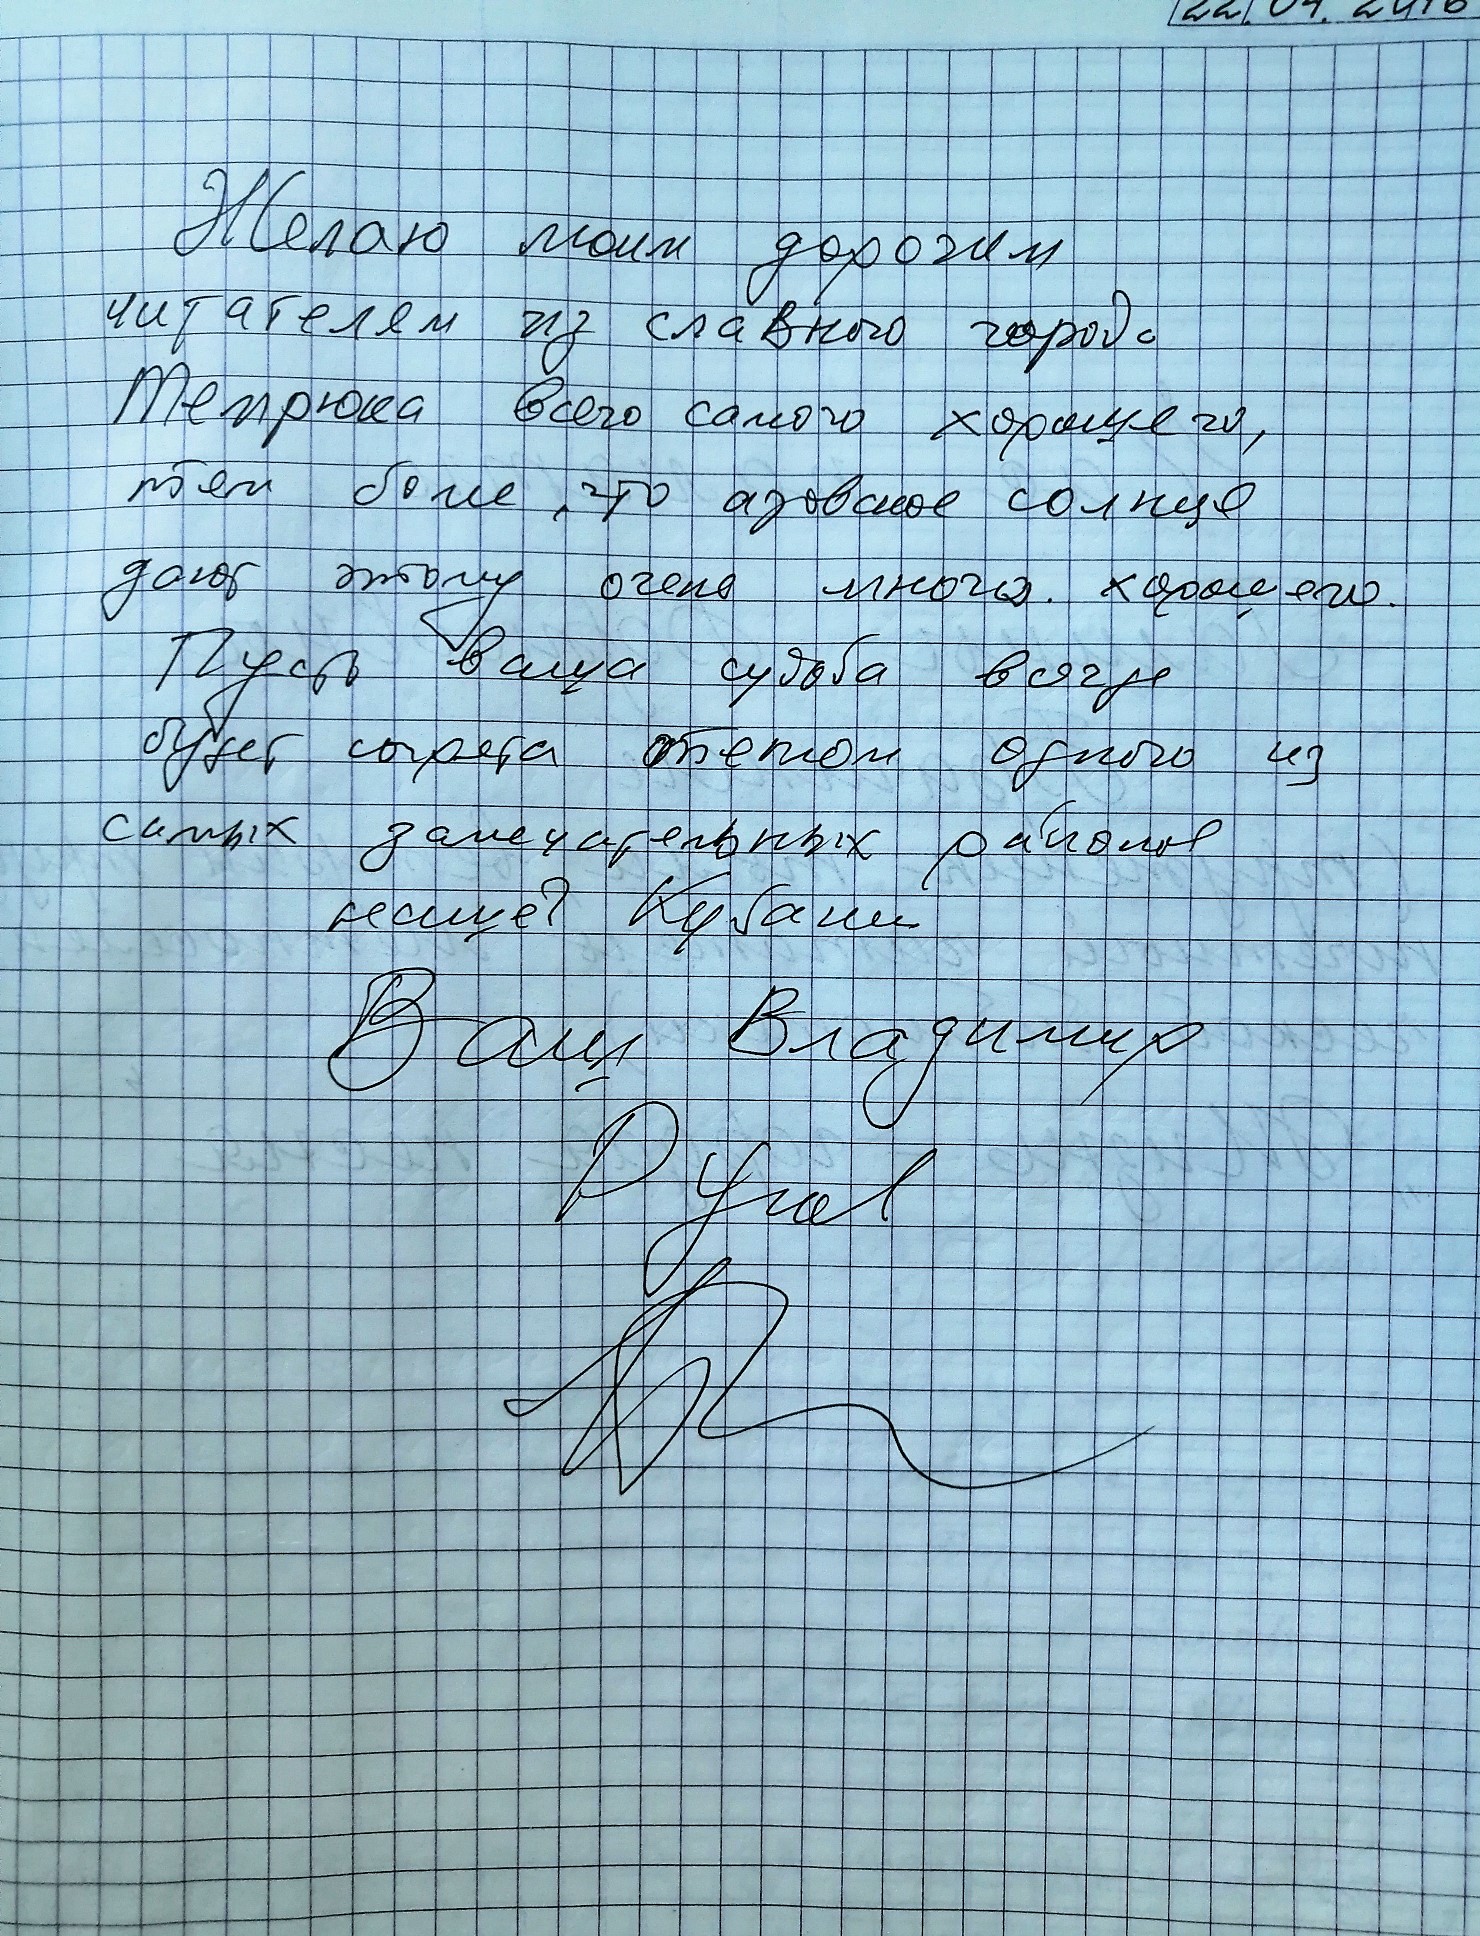 22.04.2016
Желаю моим дорогим
читателям из славного города
Темрюка всего самого хорошего,
тем боле, что азовское солнце
дают этому очень много. хорошего.
Пусть ваша судьба всегда
будет согрета теплом одного из
самых замечательных районов
нашей Кубани
Ваш Владимир
Рунов